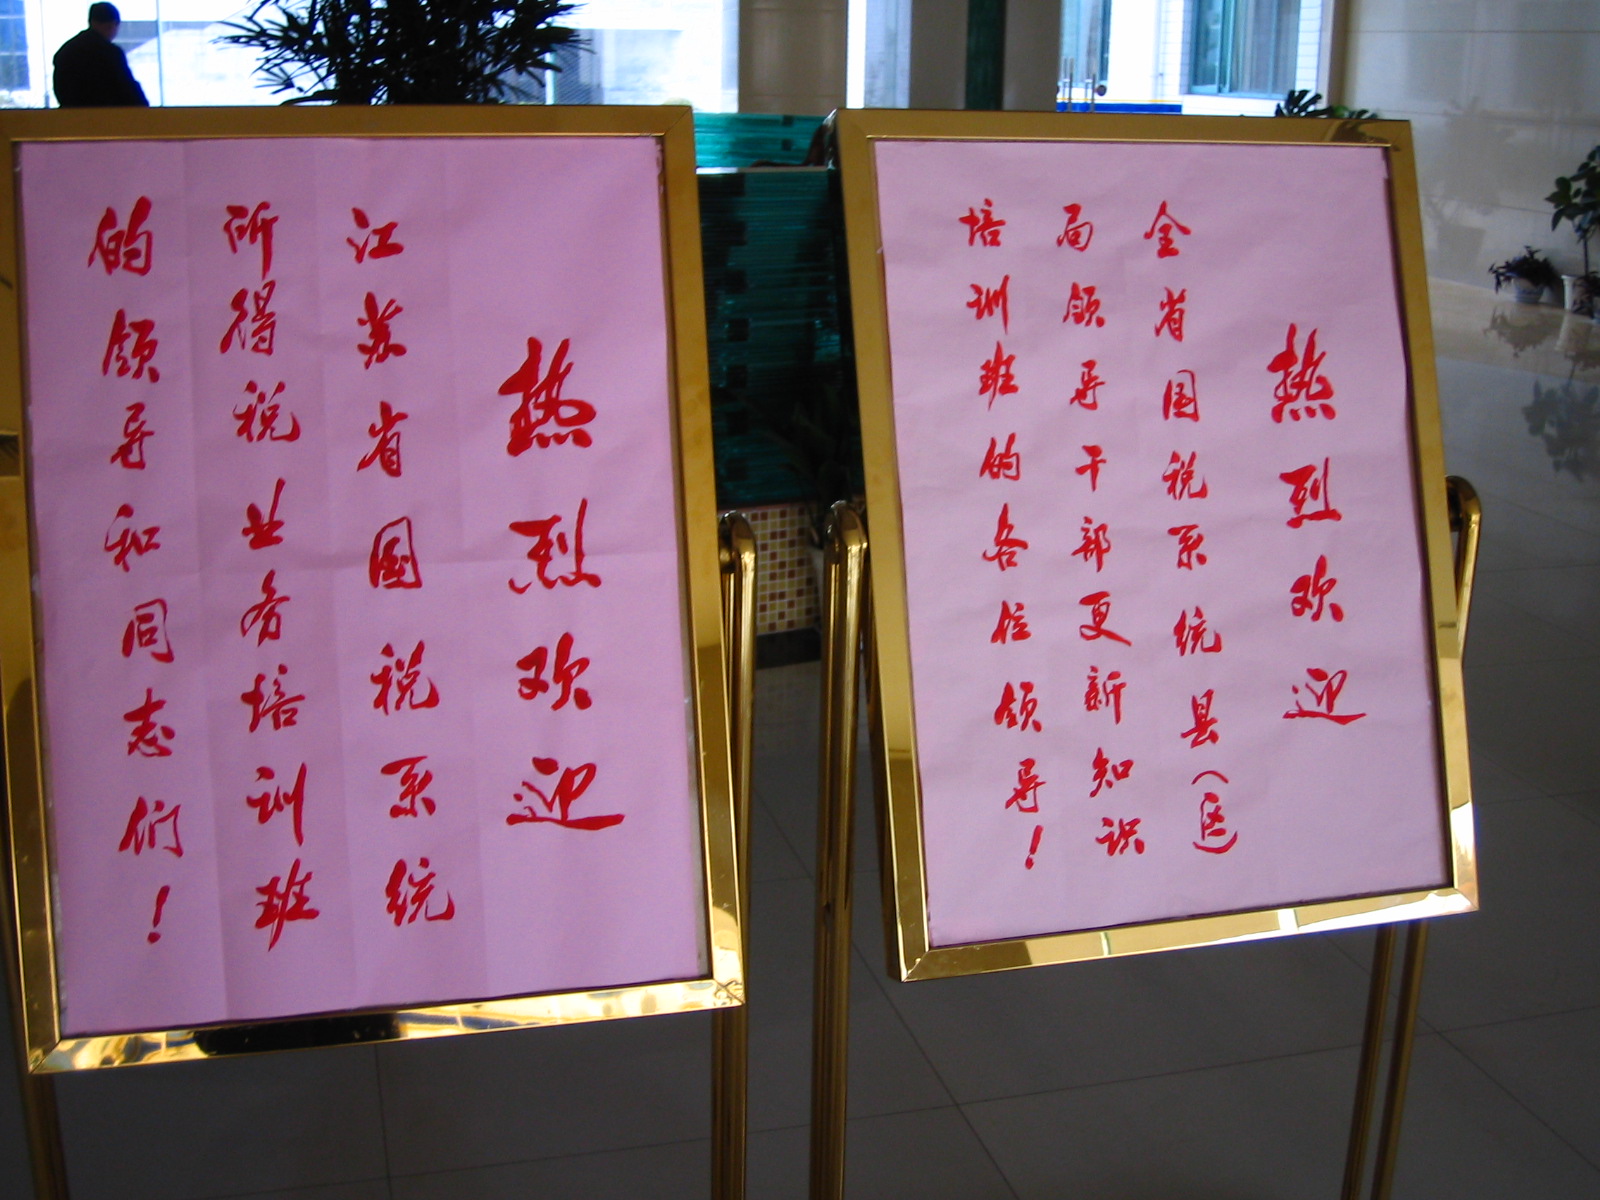 热烈欢迎
江苏省国税系统
所得税业务培训班
的领导和同志们！
热烈欢迎
全省国税系统县(区)
局领导干部更新知识
培训班的各位领导！